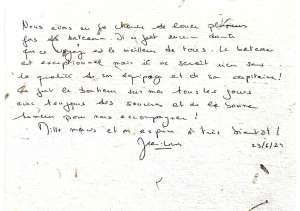 Nous avons eu la chance de louer plusieurs
fois des bateaux. Il n'y a aucun doute
que ce voyage est le meilleur de tous. Le bateau
est exceptionnel mais il ne serait rien sans
la qualité de son équipage et de sa capitaine!
Ce fut le bonheur sur mer tous les jours
avec toujours des sourires et de la bonne
humeur pour nous accompagner!
Mille mercis et on espère à très bientôt!
Jean-Luc